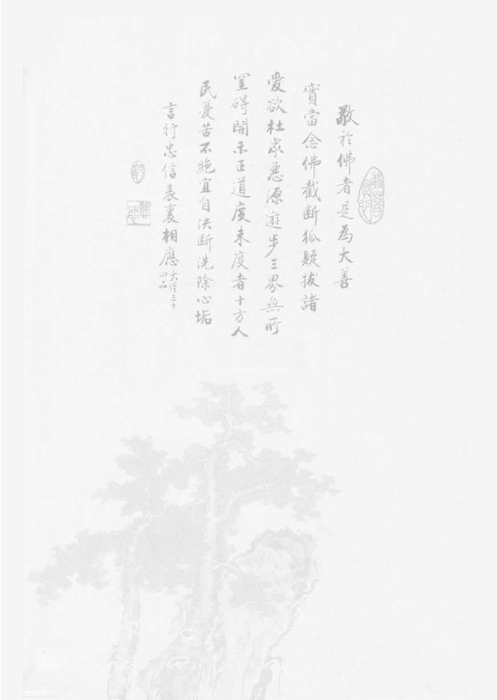 敬於佛者是為大善
實當念佛截斷狐疑拔諸
愛欲杜眾惡源遊步三界無所
罣礙開示正道度未度者十方人
民憂苦不絕宜自決斷洗除心垢
言行忠信表裏相應大經三十
四品